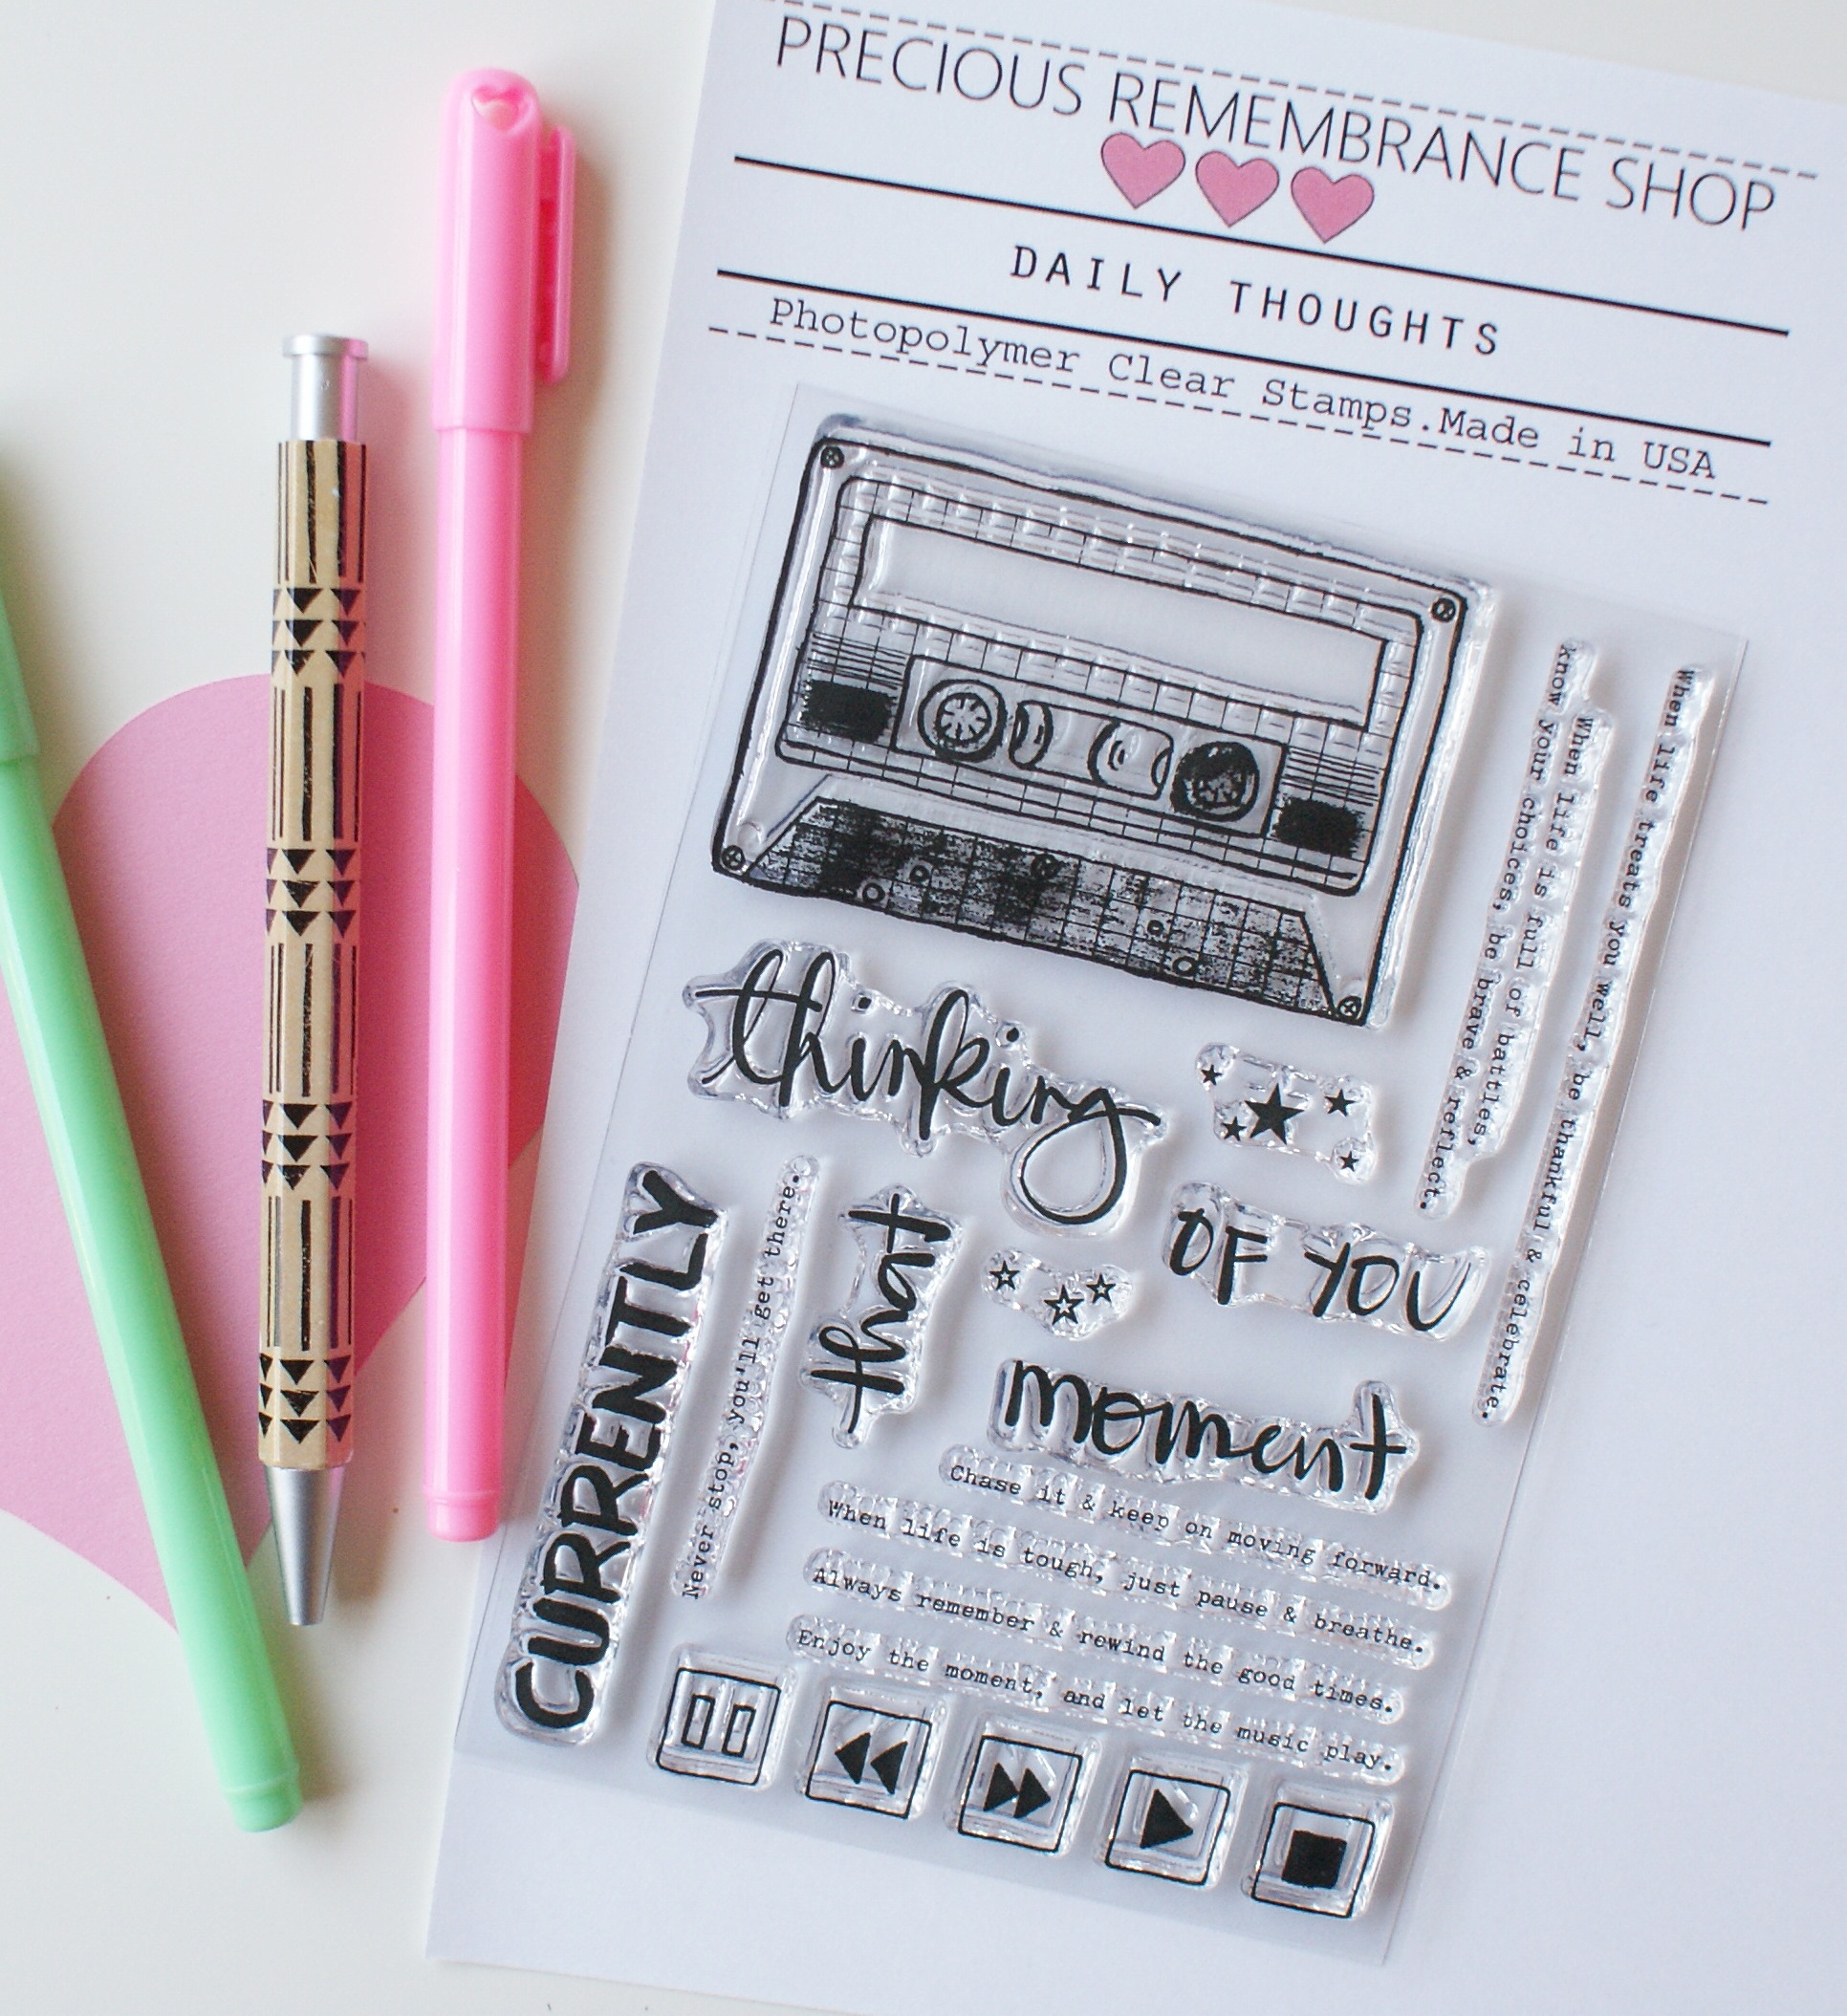 PRECIOUS REMEMBRANCE SHOP
DAILY THOUGHTS
Photopolymer Clear Stamps.Made in USA
When life treats you well, be thankful & celebrate.
When life is full of battles,
know your choices, be brave & reflect.
thinking
OF YOU
CURRENTLY
Never stop, you'll get there.
that
moment
Chase it & keep on moving forward.
When life is tough, just pause & breathe.
Always remember & rewind the good times.
Enjoy the moment, and let the music play.